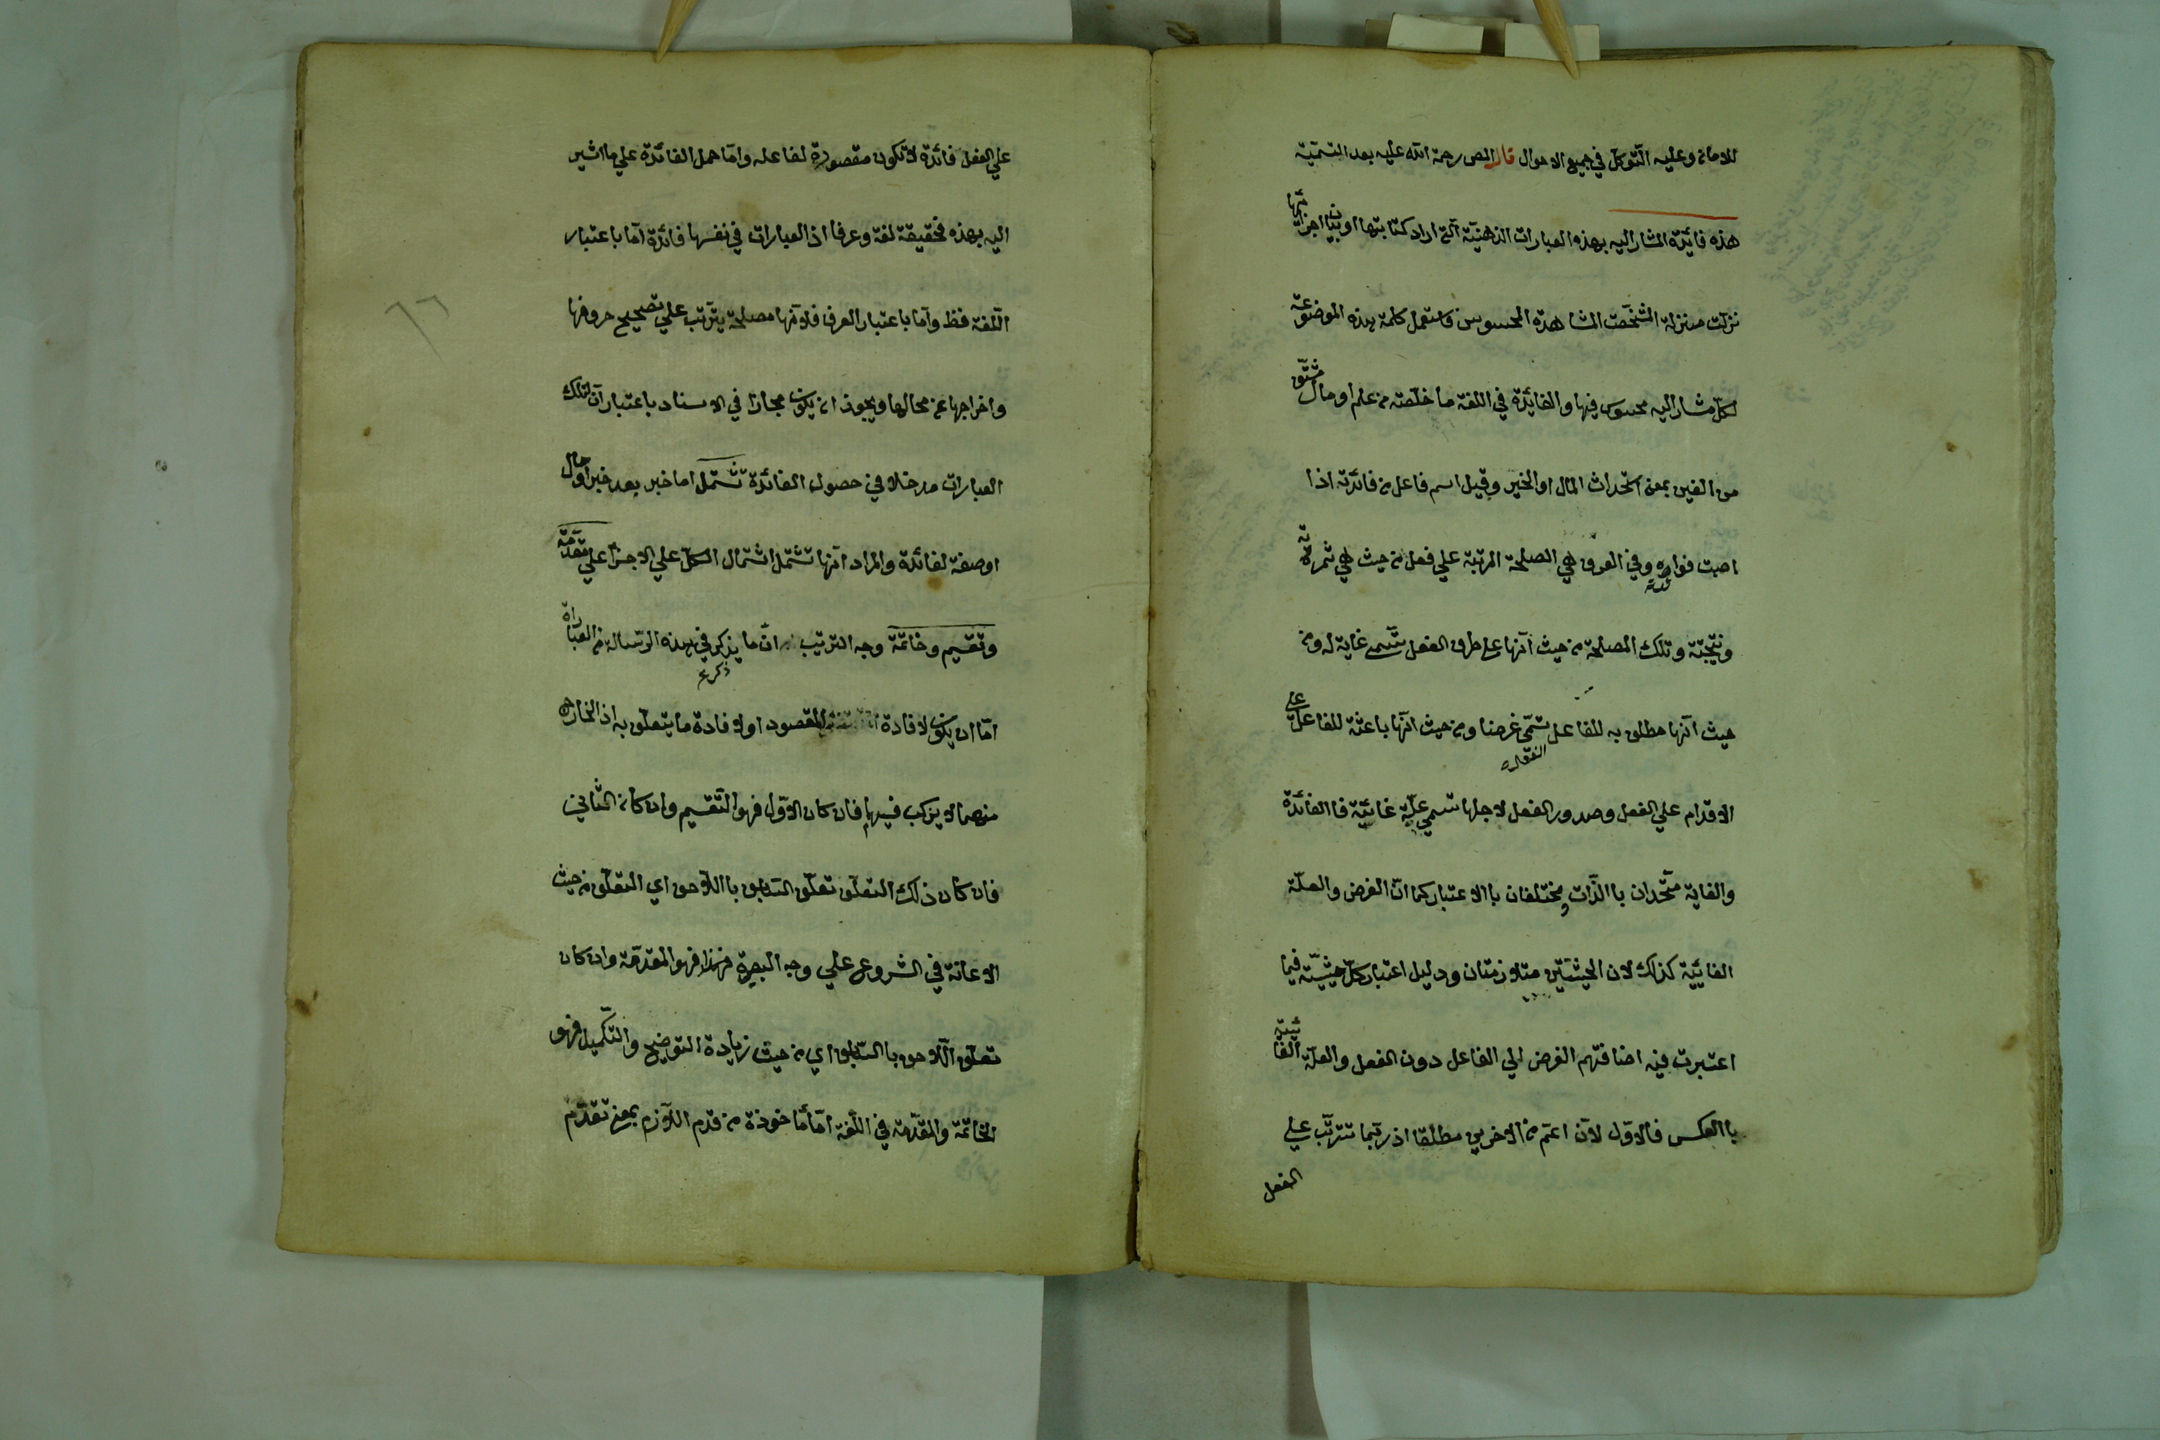 للامانة وعليه التّوكل في جميع الاحوال قال المص رحمة الله عليه بعد التسميّة
هذه فائدة المشار اليه بهذه العبارات الذهنيّة الّتي اراد كتابتها او بيان اجزائها
نزلت منزلة الشخص المشاهدة المحسوس فاستعمل كلمة هذه الموضوعة
لكل مشار اليه محسوس فيها والفائدة في اللغة ما حصّلته من علم او مال مشتق
من الفيد بمعنى استحداث المال او الخير وقيل اسم فاعل من فائدته اذا
اصبت فواده وفي العرف هي المصلحة المرتبة علي فعل من حيث هي ثمرته
ونتيجته وتلك المصلحة من حيث انّها علي طرف الفعل تسّمي غاية له ومن
حيث انّها مطلوبه للفاعل تسمّي غرضا ومن حيث انّها باعثة للفاعل علي
الاقدام علي الفعل وصدور الفعل لاجلها تسمي علّة غائيّة فا الفائدة
والغاية متّحدان با الذّات ومختلفان با الاعتبار كما انّ الغرض والعلّة
الغائيّة كذلك لان الحيثيّتين متلازمتان ودليل اعتبار كلّ حيثيّة فيما
اعتبرت فيه اضافتهم الغرض الي الفاعل دون الفعل والعلّة الغائيّة
با العكس فالاوّل لآن اعم من الاخرين مطلقا اذ ربّما تترتّب علي
الفعل
علي الفعل فائدة لا تكون مقصودة لفاعله وامّا حمل الفائدة علي ما اشير
اليه بهذه فحقيقة لغة وعرفا اذ العبارات في نفسها فائدة امّا باعتبار
اللّغة فظ وامّا باعتبار العرف فلانّها مصلحة يترتّب علي تصحيح حروفها
واخراجها عن محالها ويجوز ان يكون مجازا في الاسناد باعتبار انّ لتلك
العبارات مدخلا في حصول الفائدة تشتمل اما خبر بعد خبر او حال
او صفة لفائدة والمراد انّها تشتمل اشتمال الكلّ علي الاجزا علي مقدّمة
وتقسيم وخاتمة وجه الترتيب انّ ما يذكر في هذه الرّسالة من العبارات
امّا ان يكون لافادة المقصود او لافادة ما يتعلّق به اذ الخارج
منهما لا يذكر فيها فان كان الاوّل فهو التّقسيم وان كان الثّاني
فان كان ذلك التعلّق تعلّق السّابق با اللاّحق اي التعلّق من حيث
الاعانة في الشروع علي وجه البصيرة فهو المقدّمة وان كان
تعلّق اللاّحق با السّابق اي من حيث زيادة التوضيح والتّكميل فهو
الخاتمة والمقدّمة في اللّغة امّا مأخوذة من قدم اللاّزم بمعنى تقدّم